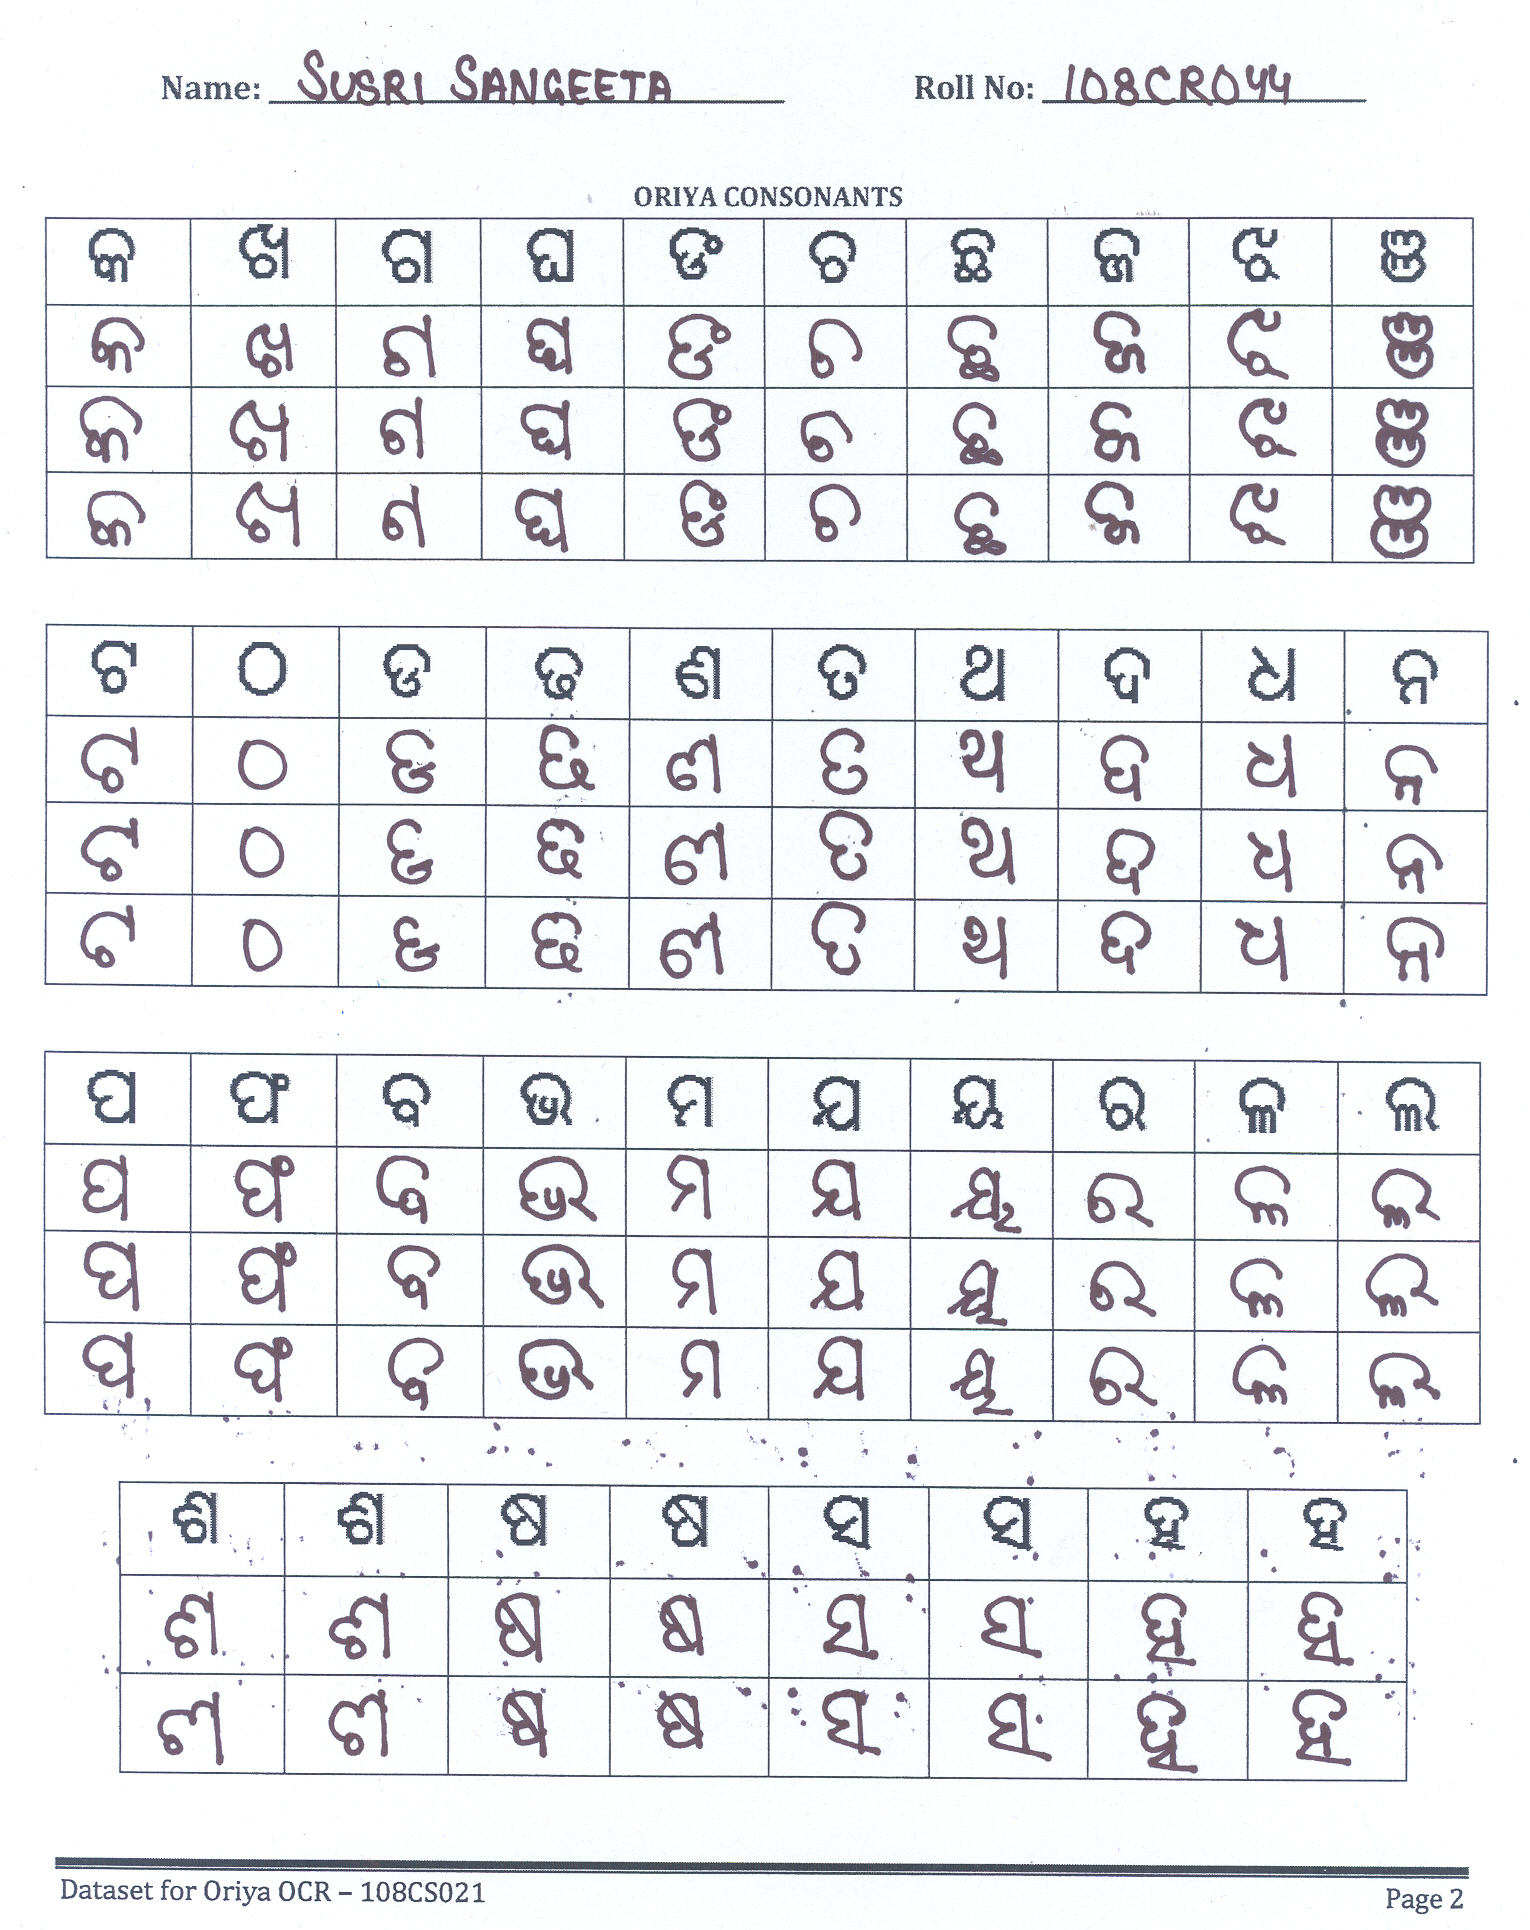 Name: SUSRI SANGEETA Roll No: 108CR044
ORIYA CONSONANTS
କ ଖ ଗ ଘ ଙ ଚ ଛ ଜ ଝ ଞ
କ ଖ ଗ ଘ ଙ ଚ ଛ ଜ ଝ ଞ
କ ଖ ଗ ଘ ଙ ଚ ଛ ଜ ଝ ଞ
କ ଖ ଗ ଘ ଙ ଚ ଛ ଜ ଝ ଞ
ଟ ଠ ଡ ଢ ଣ ତ ଥ ଦ ଧ ନ
ଟ ଠ ଡ ଢ ଣ ତ ଥ ଦ ଧ ନ
ଟ ଠ ଡ ଢ ଣ ତ ଥ ଦ ଧ ନ
ଟ ଠ ଡ ଢ ଣ ତ ଥ ଦ ଧ ନ
ପ ଫ ବ ଭ ମ ଯ ୟ ର ଳ ଲ
ପ ଫ ବ ଭ ମ ଯ ୟ ର ଳ ଲ
ପ ଫ ବ ଭ ମ ଯ ୟ ର ଳ ଲ
ପ ଫ ବ ଭ ମ ଯ ୟ ର ଳ ଲ
ଶ ଶ ଷ ଷ ସ ସ ହ ହ
ଶ ଶ ଷ ଷ ସ ସ ହ ହ
ଶ ଶ ଷ ଷ ସ ସ ହ ହ
Dataset for Oriya OCR – 108CS021 Page 2